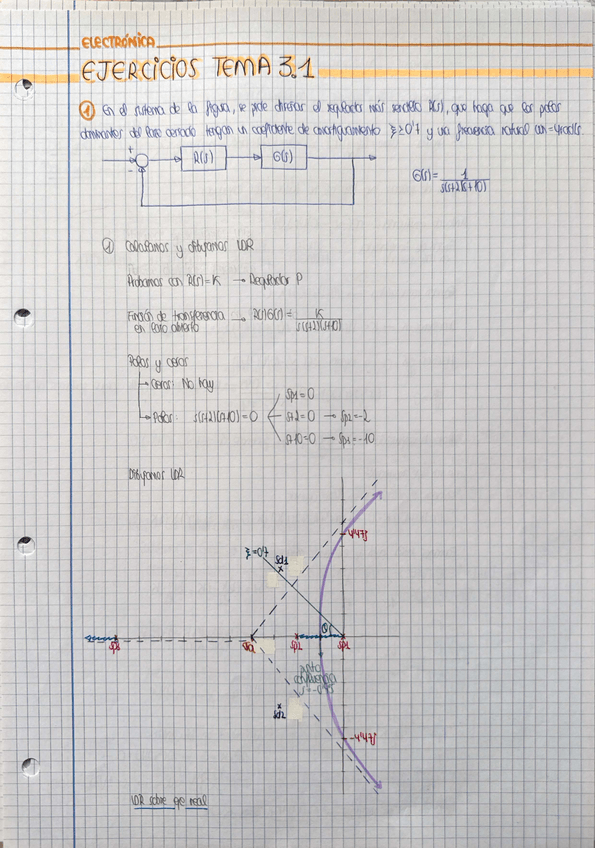 ELECTRÓNICA
EJERCICIOS TEMA 3.1
① En el sistema de la figura, se pide diseñar el regulador más sencillo R(s), que haga que los polos
dominantes del lazo cerrado tengan un coeficiente de amortiguamiento ξ≥0'7 y una frecuencia natural ωn=4rad/s
+
-
R(s)
G(s)
G(s)= 1
s(s+2)(s+10)
① Calculamos y dibujamos LDR
Probamos con R(s)=K → Regulador P
Función de transferencia
en lazo abierto → R(s)G(s)= K
s(s+2)(s+10)
Polos y ceros
Ceros: No hay
Polos: s(s+2)(s+10)=0
Sp1=0
s+2=0 → Sp2=-2
s+10=0 → Sp3=-10
Dibujamos LDR
4'47j
ξ=0'7
Sd1
θ
Sp3
Sp2
Sp1
Punto
Sd2
-4'47j
LDR sobre eje real